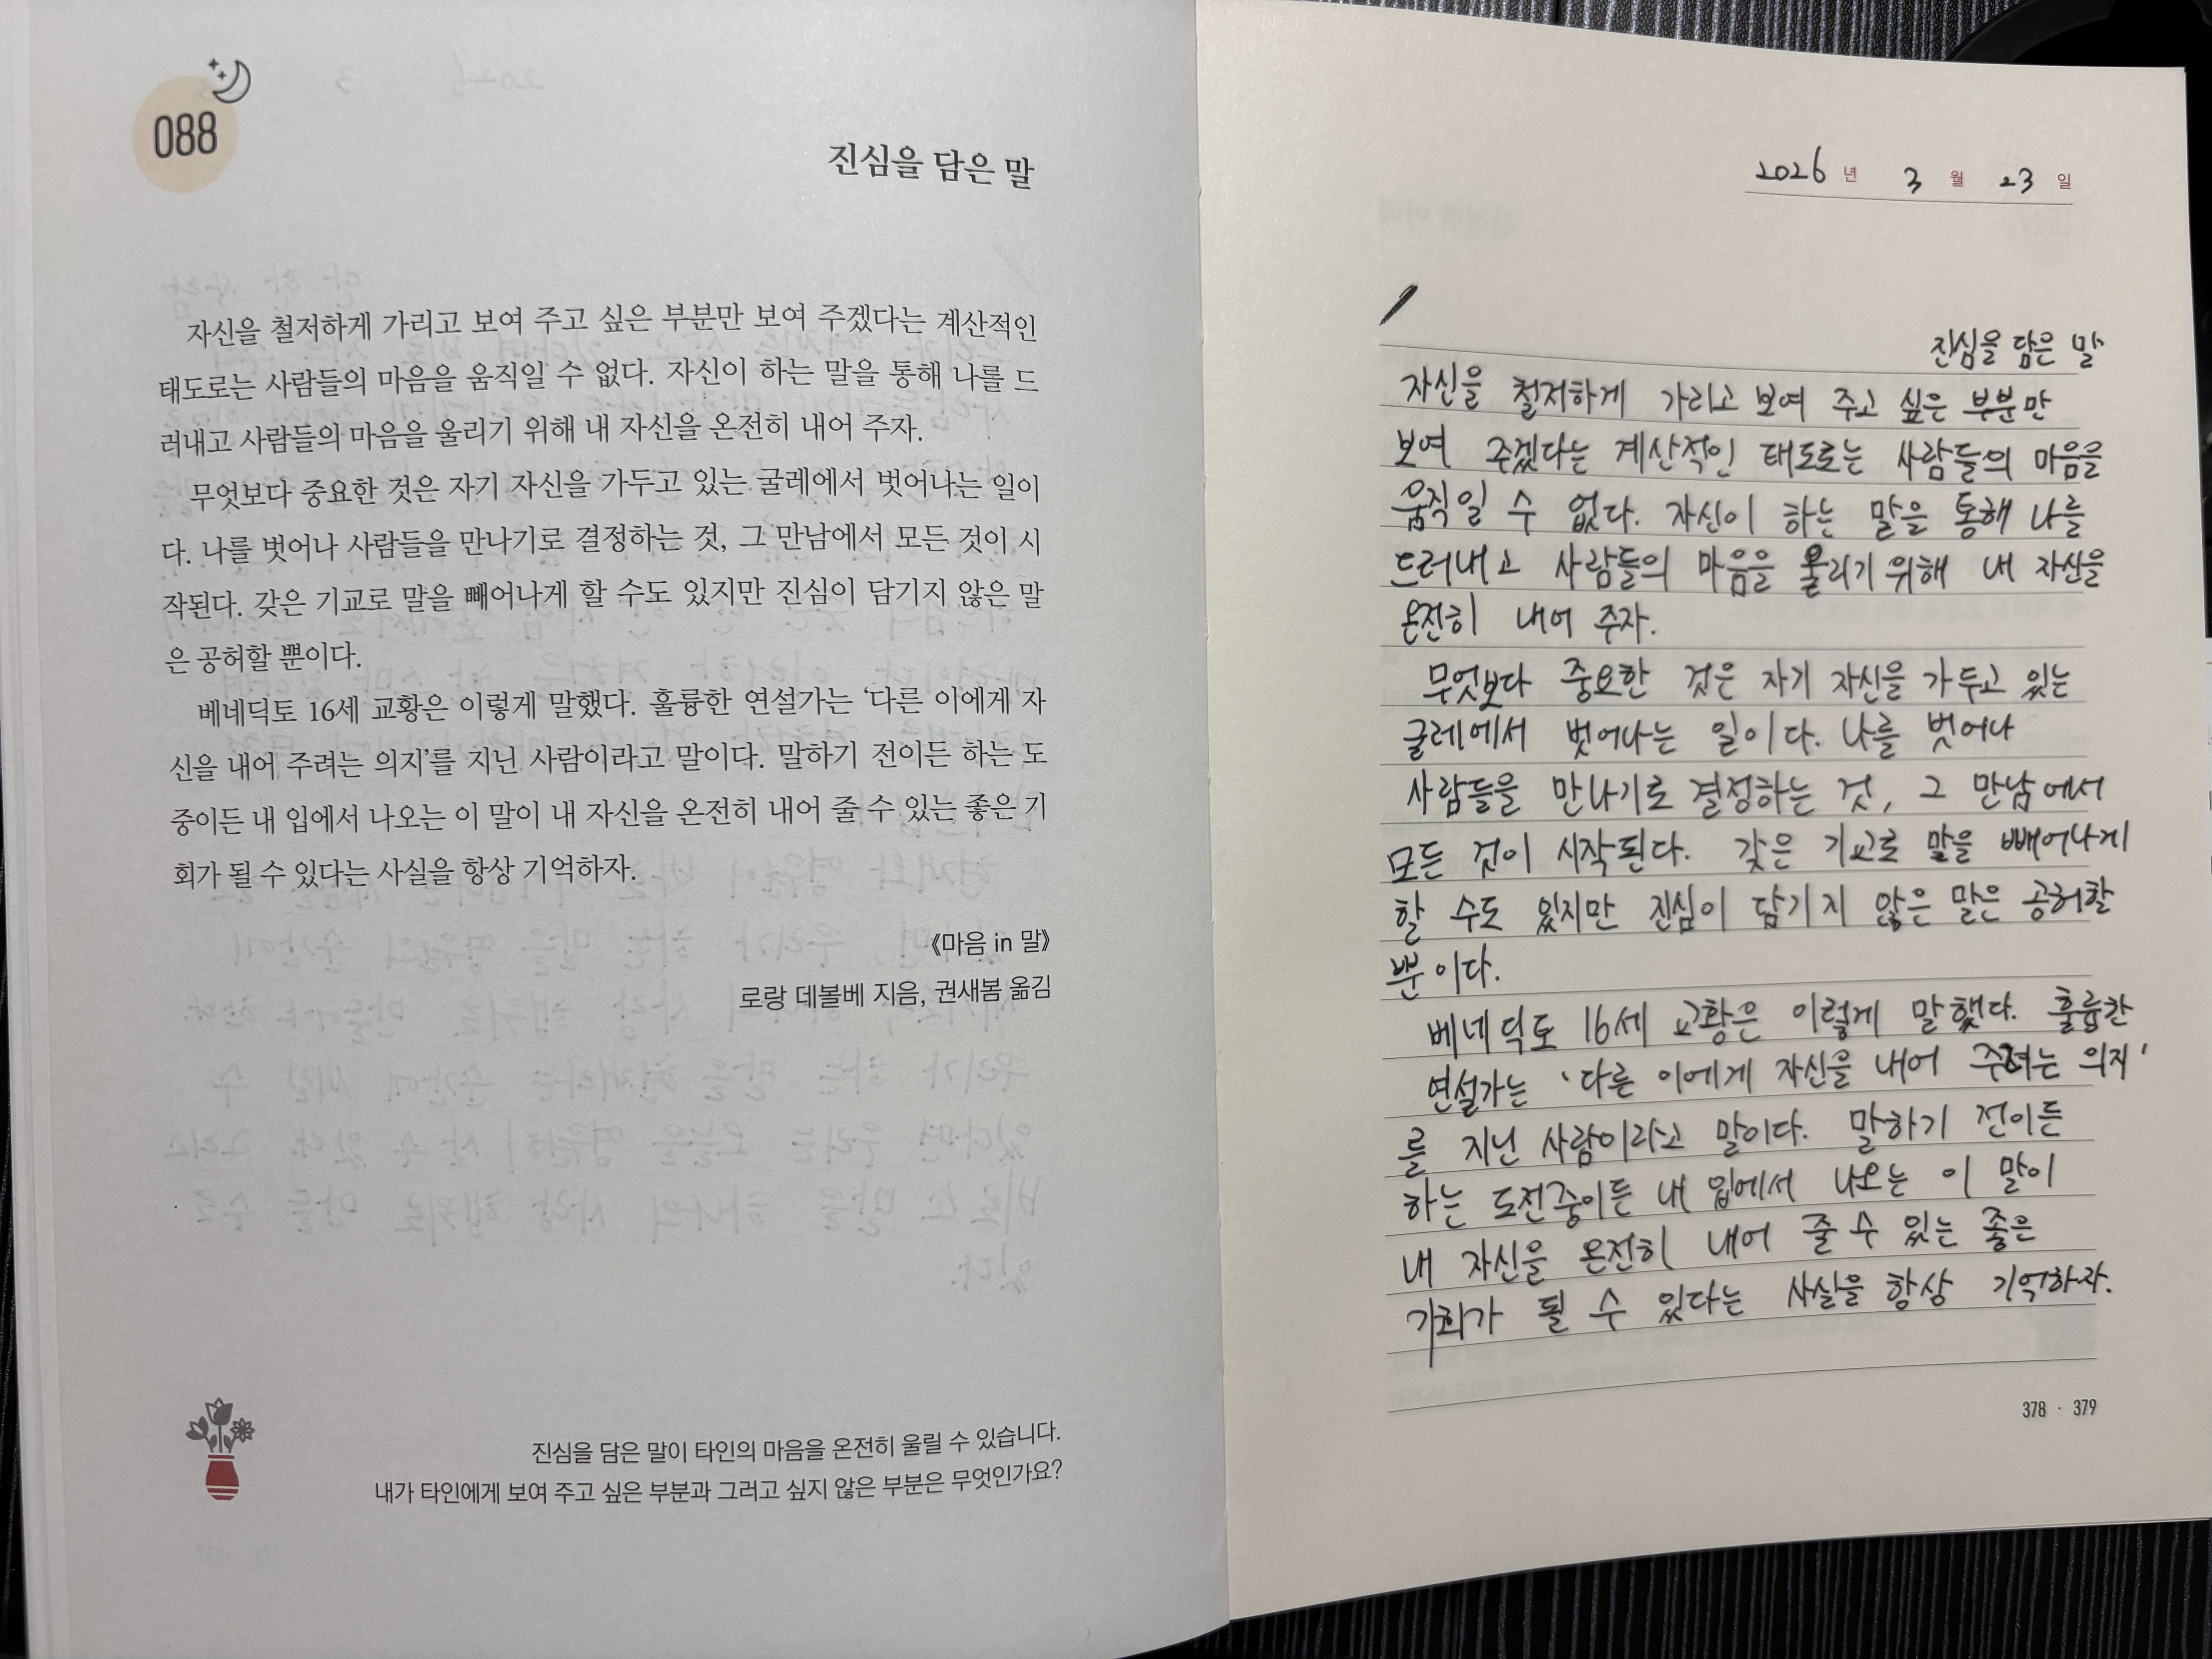 088
진심을 담은 말
자신을 철저하게 가리고 보여 주고 싶은 부분만 보여 주겠다는 계산적인
태도로는 사람들의 마음을 움직일 수 없다. 자신이 하는 말을 통해 나를 드
러내고 사람들의 마음을 울리기 위해 내 자신을 온전히 내어 주자.
무엇보다 중요한 것은 자기 자신을 가두고 있는 굴레에서 벗어나는 일이
다. 나를 벗어나 사람들을 만나기로 결정하는 것, 그 만남에서 모든 것이 시
작된다. 갖은 기교로 말을 빼어나게 할 수도 있지만 진심이 담기지 않은 말
은 공허할 뿐이다.
베네딕토 16세 교황은 이렇게 말했다. 훌륭한 연설가는 ‘다른 이에게 자
신을 내어 주려는 의지’를 지닌 사람이라고 말이다. 말하기 전이든 하는 도
중이든 내 입에서 나오는 이 말이 내 자신을 온전히 내어 줄 수 있는 좋은 기
회가 될 수 있다는 사실을 항상 기억하자.
《마음 in 말》
로랑 데볼베 지음, 권새봄 옮김
진심을 담은 말이 타인의 마음을 온전히 울릴 수 있습니다.
내가 타인에게 보여 주고 싶은 부분과 그러고 싶지 않은 부분은 무엇인가요?
2026 년 3 월 23 일
진심을 담은 말
자신을 철저하게 가리고 보여 주고 싶은 부분만
보여 주겠다는 계산적인 태도로는 사람들의 마음을
움직일 수 없다. 자신이 하는 말을 통해 나를
드러내고 사람들의 마음을 울리기 위해 내 자신을
온전히 내어 주자.
무엇보다 중요한 것은 자기 자신을 가두고 있는
굴레에서 벗어나는 일이다. 나를 벗어나
사람들을 만나기로 결정하는 것, 그 만남에서
모든 것이 시작된다. 갖은 기교로 말을 빼어나게
할 수도 있지만 진심이 담기지 않은 말은 공허할
뿐이다.
베네딕토 16세 교황은 이렇게 말했다. 훌륭한
연설가는 ‘다른 이에게 자신을 내어 주려는 의지’
를 지닌 사람이라고 말이다. 말하기 전이든
하는 도전중이든 내 입에서 나오는 이 말이
내 자신을 온전히 내어 줄 수 있는 좋은
기회가 될 수 있다는 사실을 항상 기억하자.
378 · 379